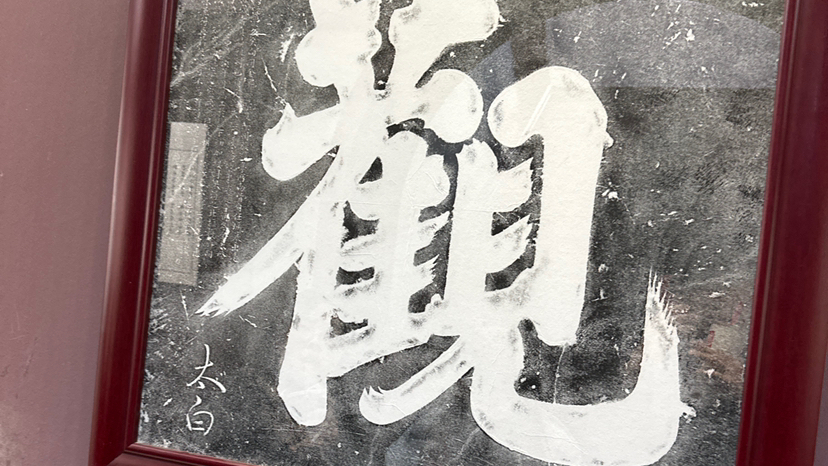 觀
太白